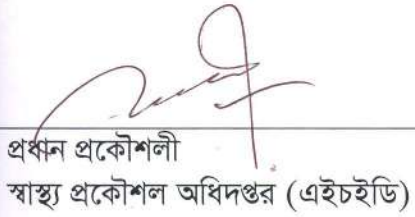 প্রধান প্রকৌশলী
স্বাস্থ্য প্রকৌশল অধিদপ্তর (এইচইডি)